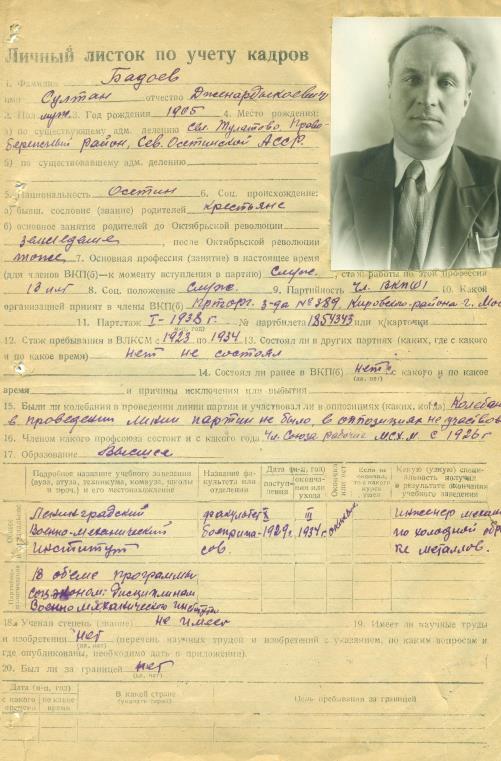 Личный листок по учету кадров
1. Фамилия Бадоев
имя Султан отчество
2. Пол муж. 3. Год рождения 1905 4. Место рождения:
а) по существующему адм. делению сел. Тулатово, Право-
бережный район, Сев. Осетинской АССР.
б) по существовавшему адм. делению
5. Национальность Осетин 6. Соц. происхождение:
а) бывш. сословие (звание) родителей крестьяне
б) основное занятие родителей до Октябрьской революции
земледелие, после Октябрьской революции
тоже 7. Основная профессия (занятие) в настоящее время
(для членов ВКП(б)—к моменту вступления в партию) служ., стаж работы по этой профессии
13 лет 8. Соц. положение служ. 9. Партийность чл. ВКП(б) 10. Какой
организацией принят в члены ВКП(б) Парторг. з-да № 389 Кировского района г. Мос
11. Партстаж I-1938 г. № партбилета 1854343 или к/карточки
12. Стаж пребывания в ВЛКСМ с 1923 по 1934 13. Состоял ли в других партиях (каких, где с какого
и по какое время) нет не состоял
14. Состоял ли ранее в ВКП(б) нет с какого и по какое
(да, нет)
время и причины исключения или выбытия
15. Были ли колебания в проведении линии партии и участвовал ли в оппозициях (каких, когда) Колебан
в проведении линии партии не было, в оппозициях не участвовал
16. Членом какого профсоюза состоит и с какого года Чл. Союза рабочих с 1926 г
17. Образование Высшее
Подробное название учебного заведения (вуза, втуза, техникума, комвуза, школы и проч.) и его местонахождение
Название факультета или отделения
Дата (м-ц, год)
поступления
окончания или ухода
Если не окончил, то с какого курса ушел
Какую (узкую) специальность получил в результате окончания учебного заведения
Ленинградский факультет X III инженер механик
Военно-механический боеприпа- 1929 г. 1934 г. окончил по холодной обра
институт сов. ке металлов.
В объеме программы
соц.эконом. дисциплинам
Военномеханического инстит
18. Ученая степень (звание) не имеет 19. Имеет ли научные труды
и изобретения нет (перечень научных трудов и изобретений с указанием, по каким вопросам и
(да, нет)
где опубликованы, необходимо дать в приложении).
20. Был ли за границей нет
(да, нет)
Дата (м-ц, год) В какой стране Цель пребывания за границей
с какого времени по какое время (указать город)